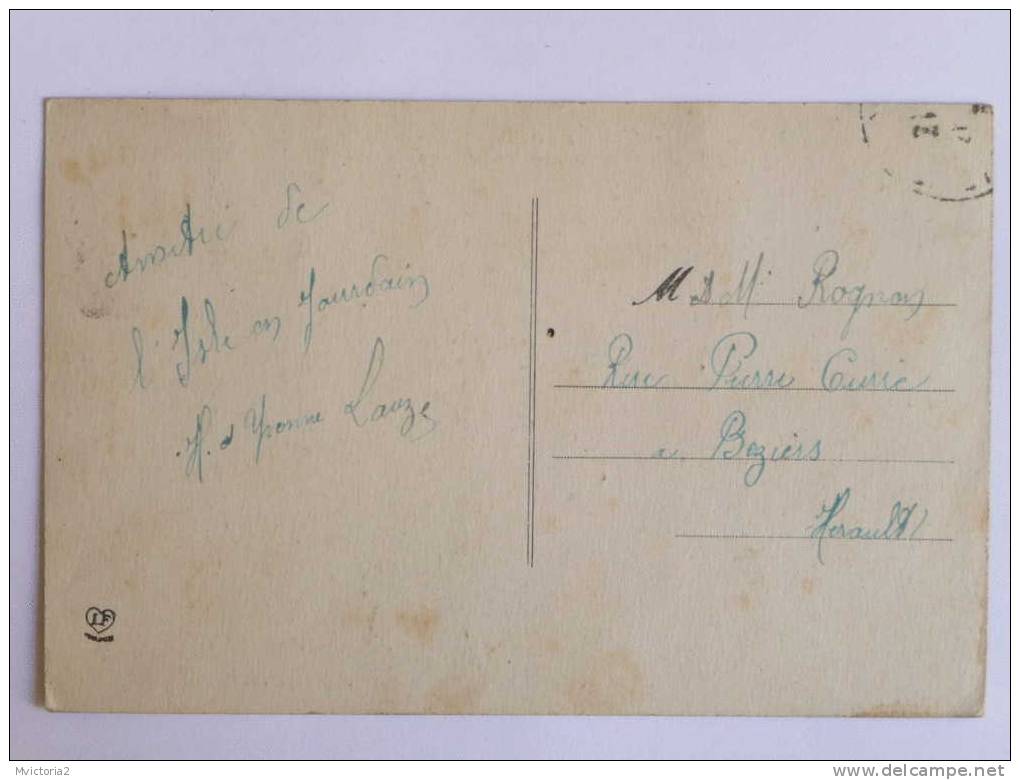 Amitié de
l'Isle en Jourdain
H. et Yvonne Lauze
M & Mme Rognon
Rue Pierre Curie
a Beziers
Herault
LF
Mvictoria2
delcampe.net